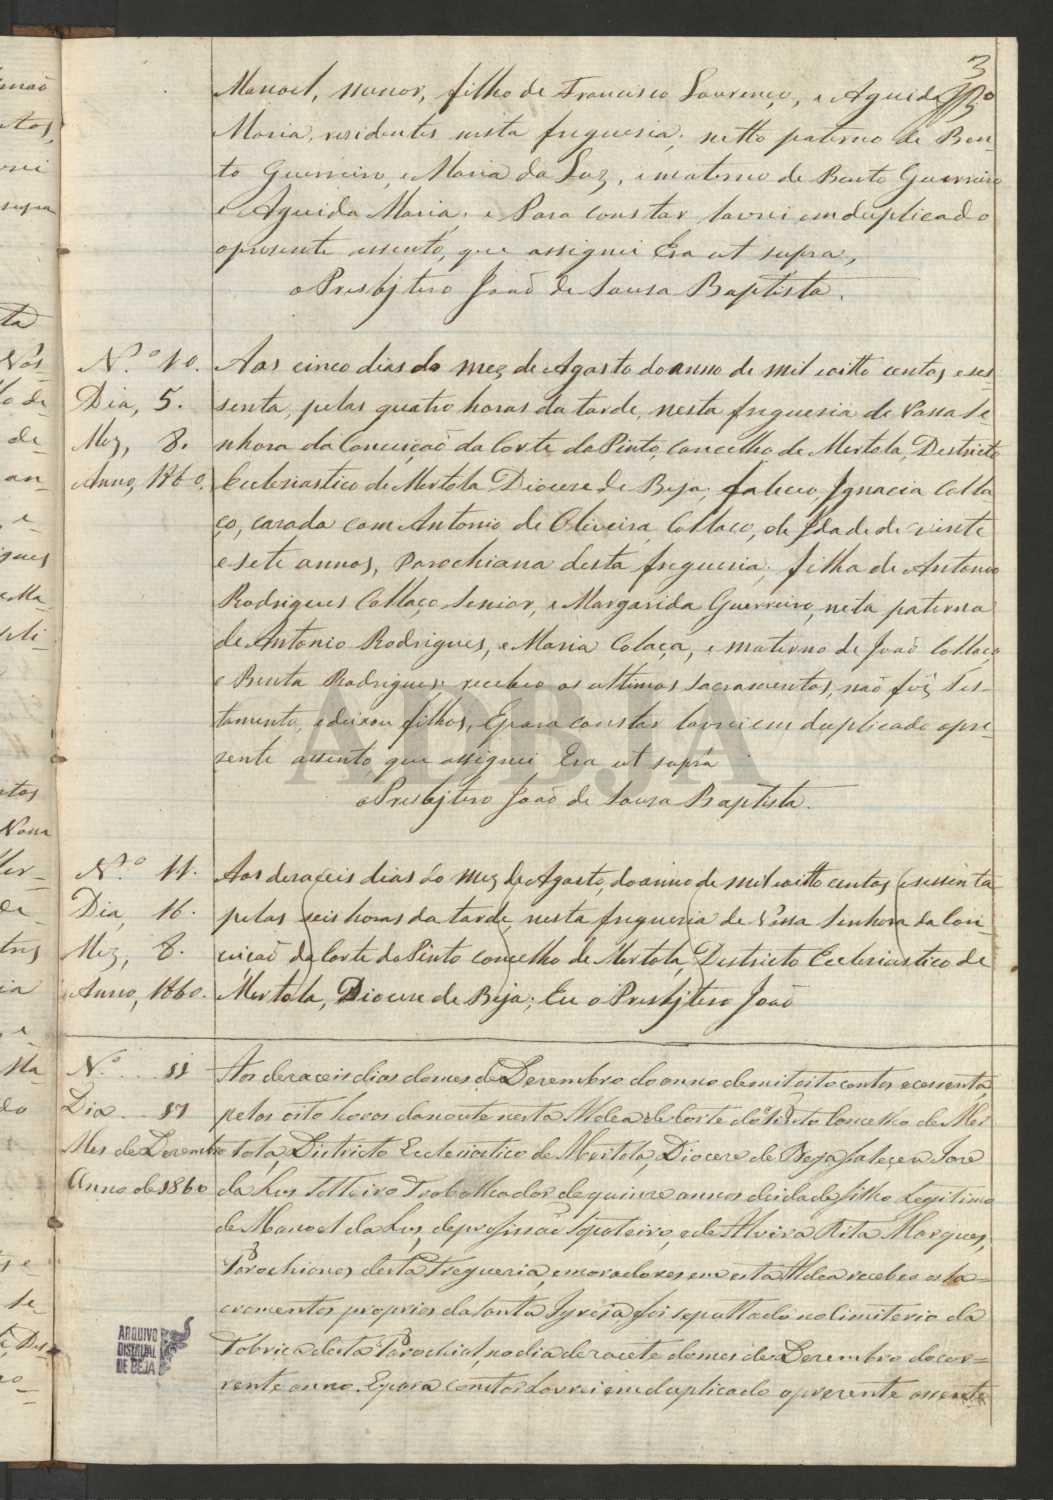 3
Manoel, menor, filho de Francisco Lourenço, e Aguida
Maria, residentes nesta freguesia; netto paterno de Ben-
to Guerreiro, e Maria da Luz, e materno de Bento Guerreiro
e Aguida Maria. e Para constar lavrei em duplicado
o presente assento, que assignei Era ut supra,
o Presbjtero João de Sousa Baptista.
N.º 10.
Dia, 5.
Mez, 8.
Anno, 1860.
Aos cinco dias do mez de Agosto do anno de mil e oitto centos e ses-
senta, pelas quatro horas da tarde, nesta freguesia de Nossa Se-
nhora da Conceição da Corte do Pinto, concelho de Mertola, Destricto
Ecclesiastico de Mertola Diocese de Beja; faleceo Ignacia Colla
ço, casada com Antonio de Oliveira Collaco, de Idade de vinte
e sete annos, Parochiana desta freguesia; filha de Antonio
Rodrigues Collaço Senior, e Margarida Guerreiro, neta paterna
de Antonio Rodrigues, e Maria Colaça, e materno de João Collaço
e Benta Rodrigues; recebeo os ultimos sacramentos, não fêz Tes-
tamento, e deixou filhos, E para constar lavrei em duplicado o pre-
sente assento que assignei Era ut supra
o Presbjtero João de Sousa Baptista.
N.º 11.
Dia, 16.
Mez, 8.
Anno, 1860.
Aos dezaceis dias do mez de Agosto, do anno de mil e oitto centos e sessenta
pelas seis horas da tarde, nesta freguesia de Nossa Senhora da Con-
ceição da Corte do Pinto concelho de Mertola, Destricto Ecclesiastico de
Mertola, Diocese de Beja; Eu o Presbjtero João
N.º 11
Dia 17
Mes de Dezembro
Anno de 1860
Aos dezaceis dias do mes de Dezembro do anno de mil oito centos e cessenta,
pelas oito horas da noute nesta Aldea de Corte do Pinto Concelho de Mer
tola, Districto Ecclesiastico de Mertola, Diocese de Beja faleceu José
da Lus solteiro Trabalhador de quinze annos de idade filho Legitimo
de Manoel da Lus, de profissão Sapateiro, e de Alvira Rita Marques,
Parochianos desta Freguezia, e moradores em esta Aldea recebeo os Sa=
cramentos proprios da Santa Igreja foi sepultado no Cimiterio da
Fabrica desta Parochial, no dia dezacete do mes de Dezembro do cor=
rente anno. E para constar Lavrei em duplicado o prezente assento
ADBJA
ARQUIVO
DISTRITAL
DE BEJA